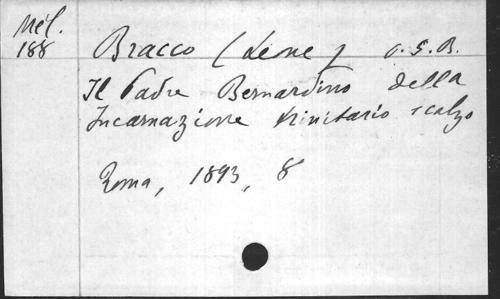 Mél.
188
Bracco (Leone) O.S.B.
Il Padre Bernardino della
Incarnazione trinitario scalzo
Roma, 1893, 8